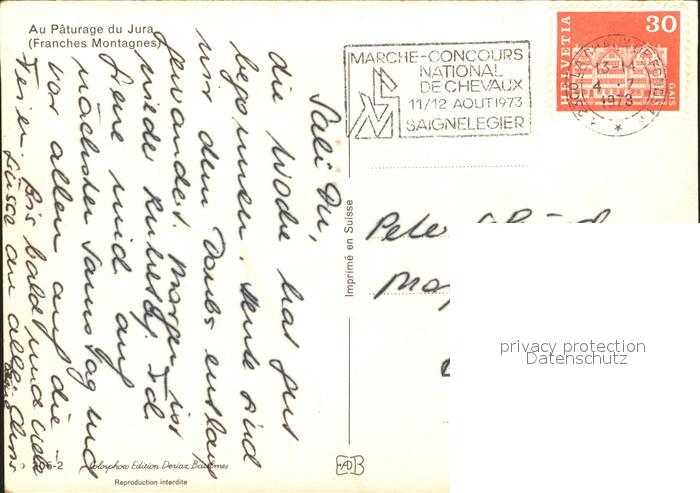 Au Pâturage du Jura
(Franches Montagnes)
MARCHE-CONCOURS
NATIONAL
DE CHEVAUX
11/12 AOUT 1973
SAIGNELEGIER
HELVETIA
30
GAIS
13-14
4.-7
1973
Sali Du,
die Woche hat gut
begonnen. Heute sind
wir dem Doubs entlang
gewandert. Morgen ist
wieder Ruhetag. Ich
freue mich auf
nächsten Samstag und
vor allem auf die
Ferien. Bis bald und viele
Grüsse an alle
Imprimé en Suisse
Peter
306-2
Colorphoto Edition Deriaz Baulmes
Reproduction interdite
privacy protection
Datenschutz